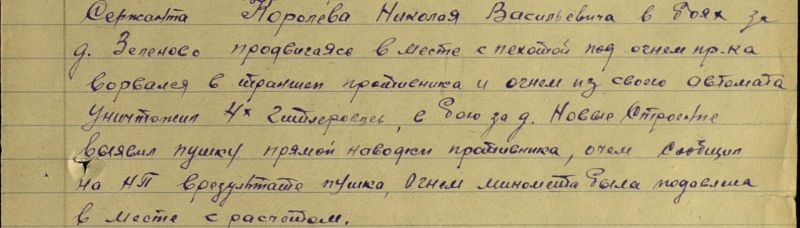 Сержанта Королева Николая Васильевича в боях за
д. Зеленово продвигаясь в месте с пехотой под огнем пр-ка
ворвался в траншеи противника и огнем из своего автомата
уничтожил 4х гитлеровцев, в бою за д. Новые Строение
выявил пушку прямой наводки противника, очем сообщил
на НП врезультате пушка, огнем миномета была подавлена
в месте с расчетом.